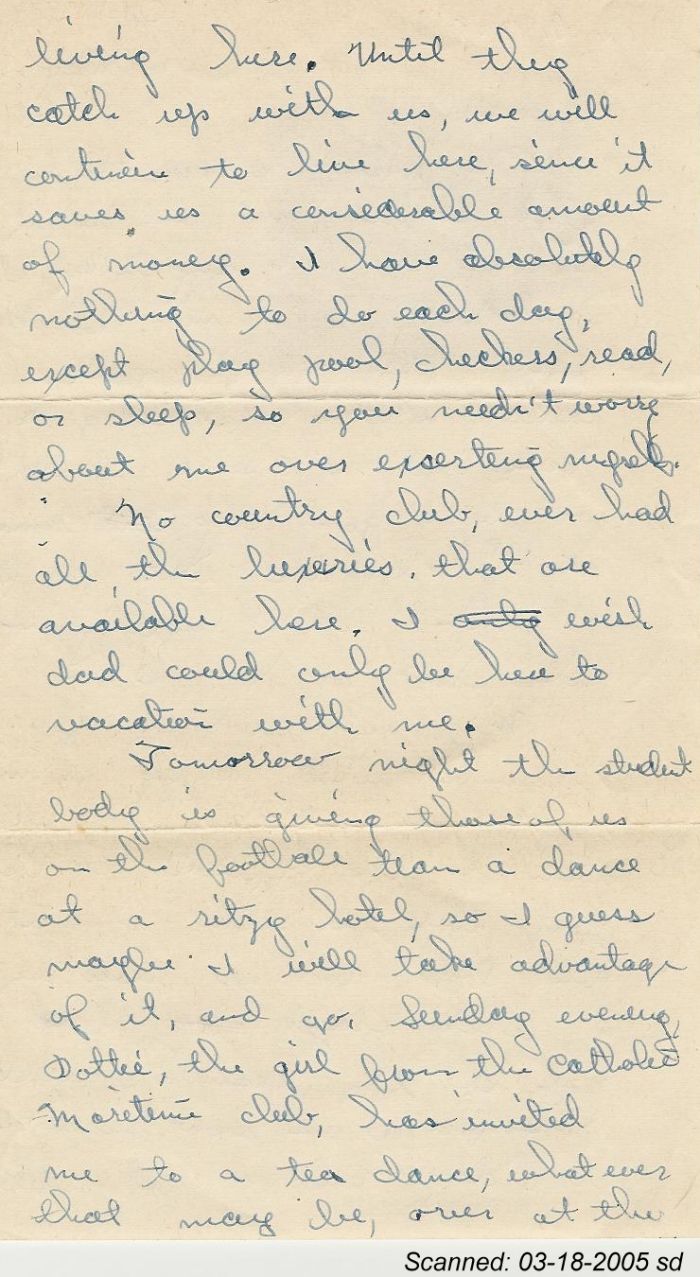 living here. Until they
catch up with us, we will
continue to live here, since it
saves us a considerable amount
of money. I have absolutely
nothing to do each day,
except play pool, checkers, read,
or sleep, so you needn't worry
about me over exserting myself.
No country club, ever had
all the luxuries, that are
available here. I only wish
dad could only be here to
vacation with me.
Tomorrow night the student
body is giving those of us
on the football team a dance
at a ritzy hotel, so I guess
maybe I will take advantage
of it, and go. Sunday evening,
Dottie, the girl from the Catholic
Maretime club, has invited
me to a tea dance, what ever
that may be, over at the
Scanned: 03-18-2005 sd